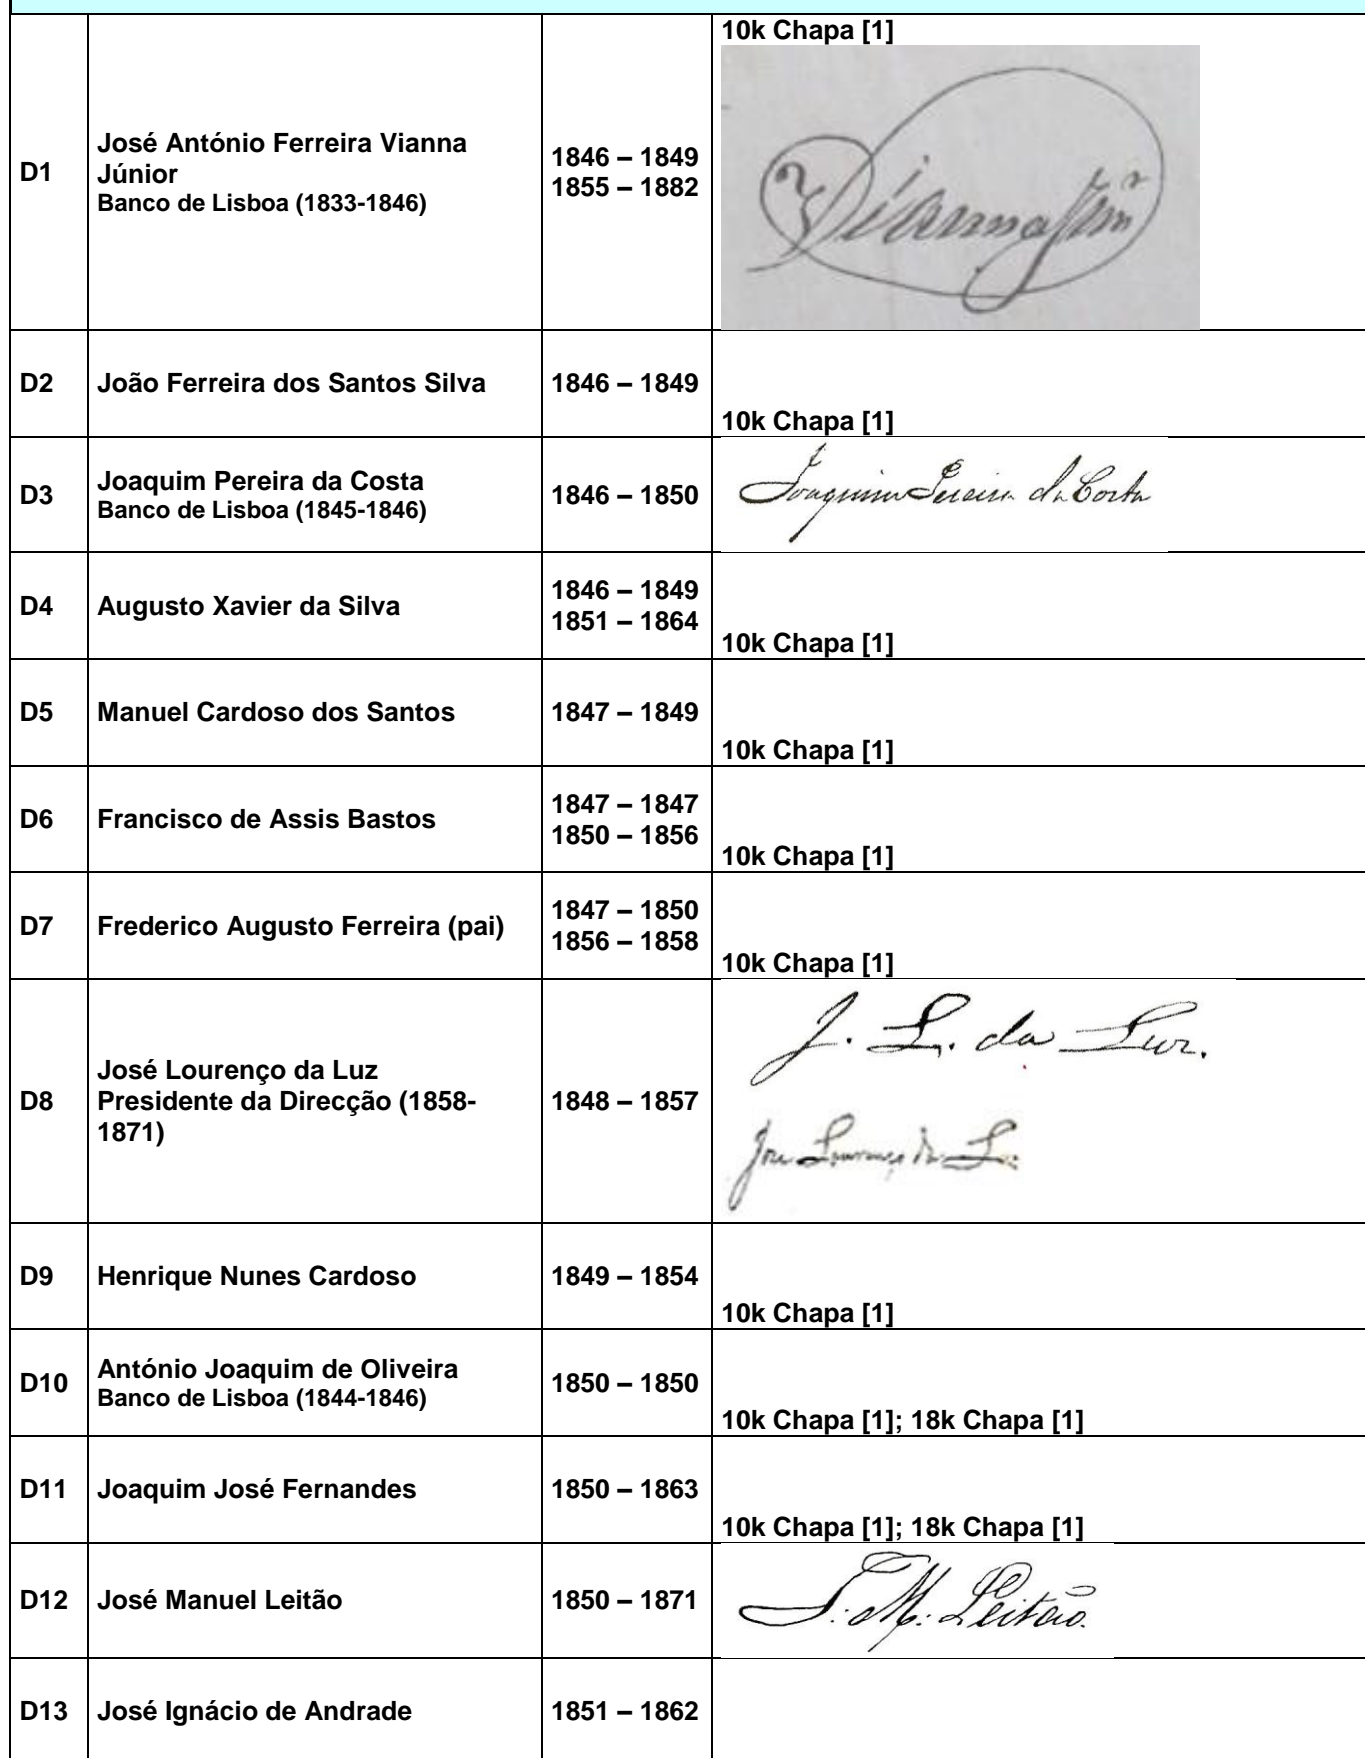 10k Chapa [1]
D1
José António Ferreira Vianna
Júnior
Banco de Lisboa (1833-1846)
1846 – 1849
1855 – 1882
Vianna Jun
D2
João Ferreira dos Santos Silva
1846 – 1849
10k Chapa [1]
D3
Joaquim Pereira da Costa
Banco de Lisboa (1845-1846)
1846 – 1850
Joaquim Pereira da Costa
D4
Augusto Xavier da Silva
1846 – 1849
1851 – 1864
10k Chapa [1]
D5
Manuel Cardoso dos Santos
1847 – 1849
10k Chapa [1]
D6
Francisco de Assis Bastos
1847 – 1847
1850 – 1856
10k Chapa [1]
D7
Frederico Augusto Ferreira (pai)
1847 – 1850
1856 – 1858
10k Chapa [1]
D8
José Lourenço da Luz
Presidente da Direcção (1858-
1871)
1848 – 1857
J. L. da Luz.
Jose Lourenço da L.
D9
Henrique Nunes Cardoso
1849 – 1854
10k Chapa [1]
D10
António Joaquim de Oliveira
Banco de Lisboa (1844-1846)
1850 – 1850
10k Chapa [1]; 18k Chapa [1]
D11
Joaquim José Fernandes
1850 – 1863
10k Chapa [1]; 18k Chapa [1]
D12
José Manuel Leitão
1850 – 1871
J. M. Leitão.
D13
José Ignácio de Andrade
1851 – 1862